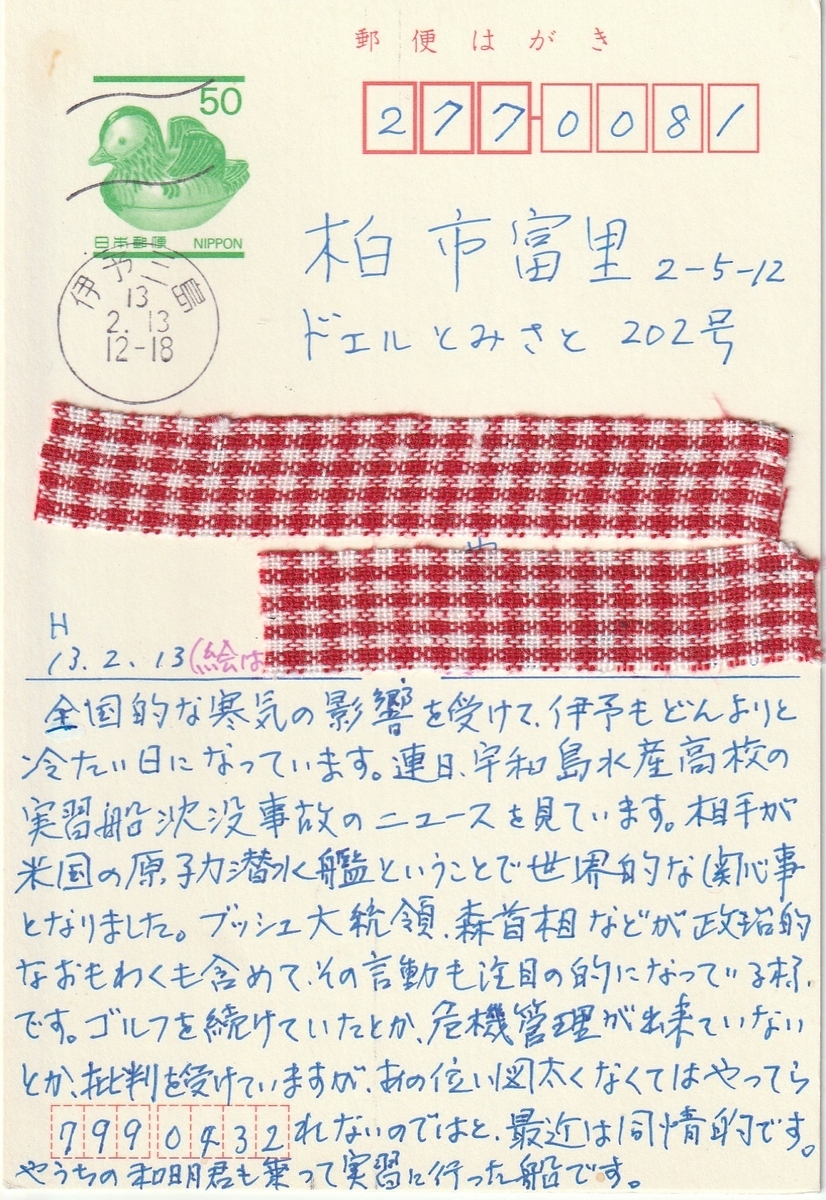 郵便はがき
50
277-0081
日本郵便 NIPPON
伊予三島
13
2. 13
12-18
柏市富里 2-5-12
ドエルとみさと 202号
H
13.2.13(絵は
全国的な寒気の影響を受けて、伊予もどんよりと
冷たい日になっています。連日、宇和島水産高校の
実習船沈没事故のニュースを見ています。相手が
米国の原子力潜水艦ということで世界的な関心事
となりました。ブッシュ大統領、森首相などが政治的
なおもわくも含めて、その言動も注目の的になっている様
です。ゴルフを続けていたとか、危機管理が出来ていない
とか、批判を受けていますが、あの位い図太くなくてはやってら
れないのではと、最近は同情的です。
7990432
やうちの和明君も乗って実習に行った船です。